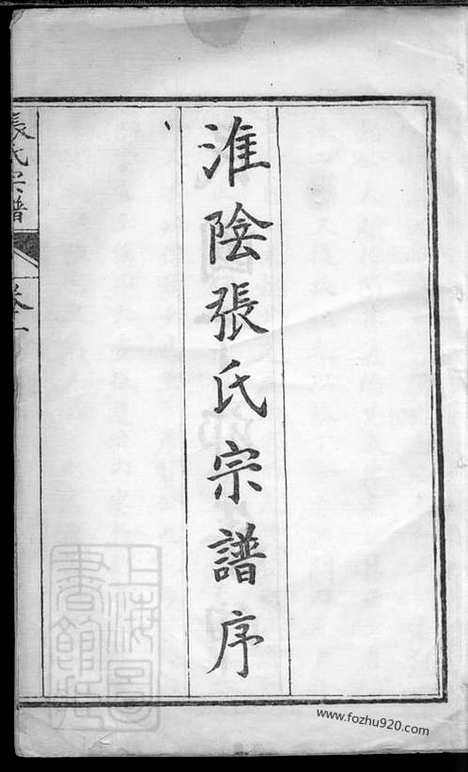 淮陰張氏宗譜序
張氏宗譜
卷
上海圖書館藏
www.fozhu920.com